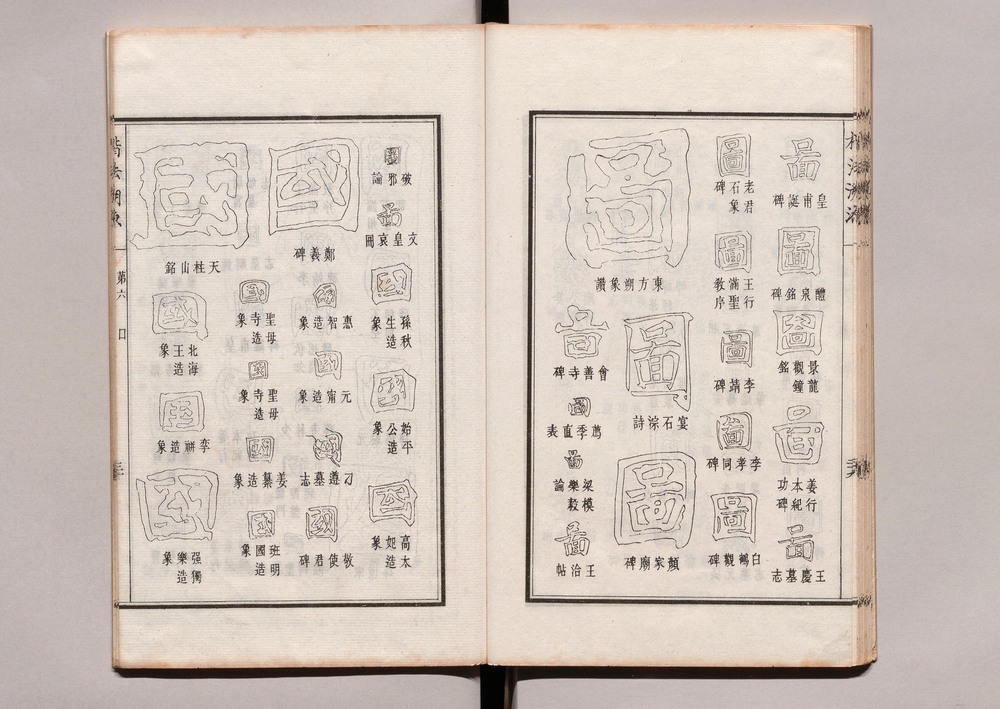 楷法溯源
啚
皇甫誕碑
圖
醴泉銘碑
圖
景龍觀鐘銘
啚
姜行本紀功碑
啚
王慶墓志
圖
老君石象碑
圖
王行滿聖教序
圖
李靖碑
圖
李孝同碑
圖
白鶴觀碑
圖
東方朔象讚
圖
宴石淙詩
圖
顏家廟碑
啚
會善寺碑
圖
薦季直表
啚
梁模樂毅論
啚
王洽帖
國
破邪論
啚
文皇哀冊
國
孫秋生造象
國
始平公造象
國
高太妃造象
國
鄭義碑
國
惠智造象
國
元甯造象
國
刁遵墓志
國
敬使君碑
國
聖母寺造象
國
聖母寺造象
國
姜纂造象
國
班明國造象
國
天柱山銘
國
北海王造象
國
造象
國
强獨樂造象
楷法溯源
第六
口